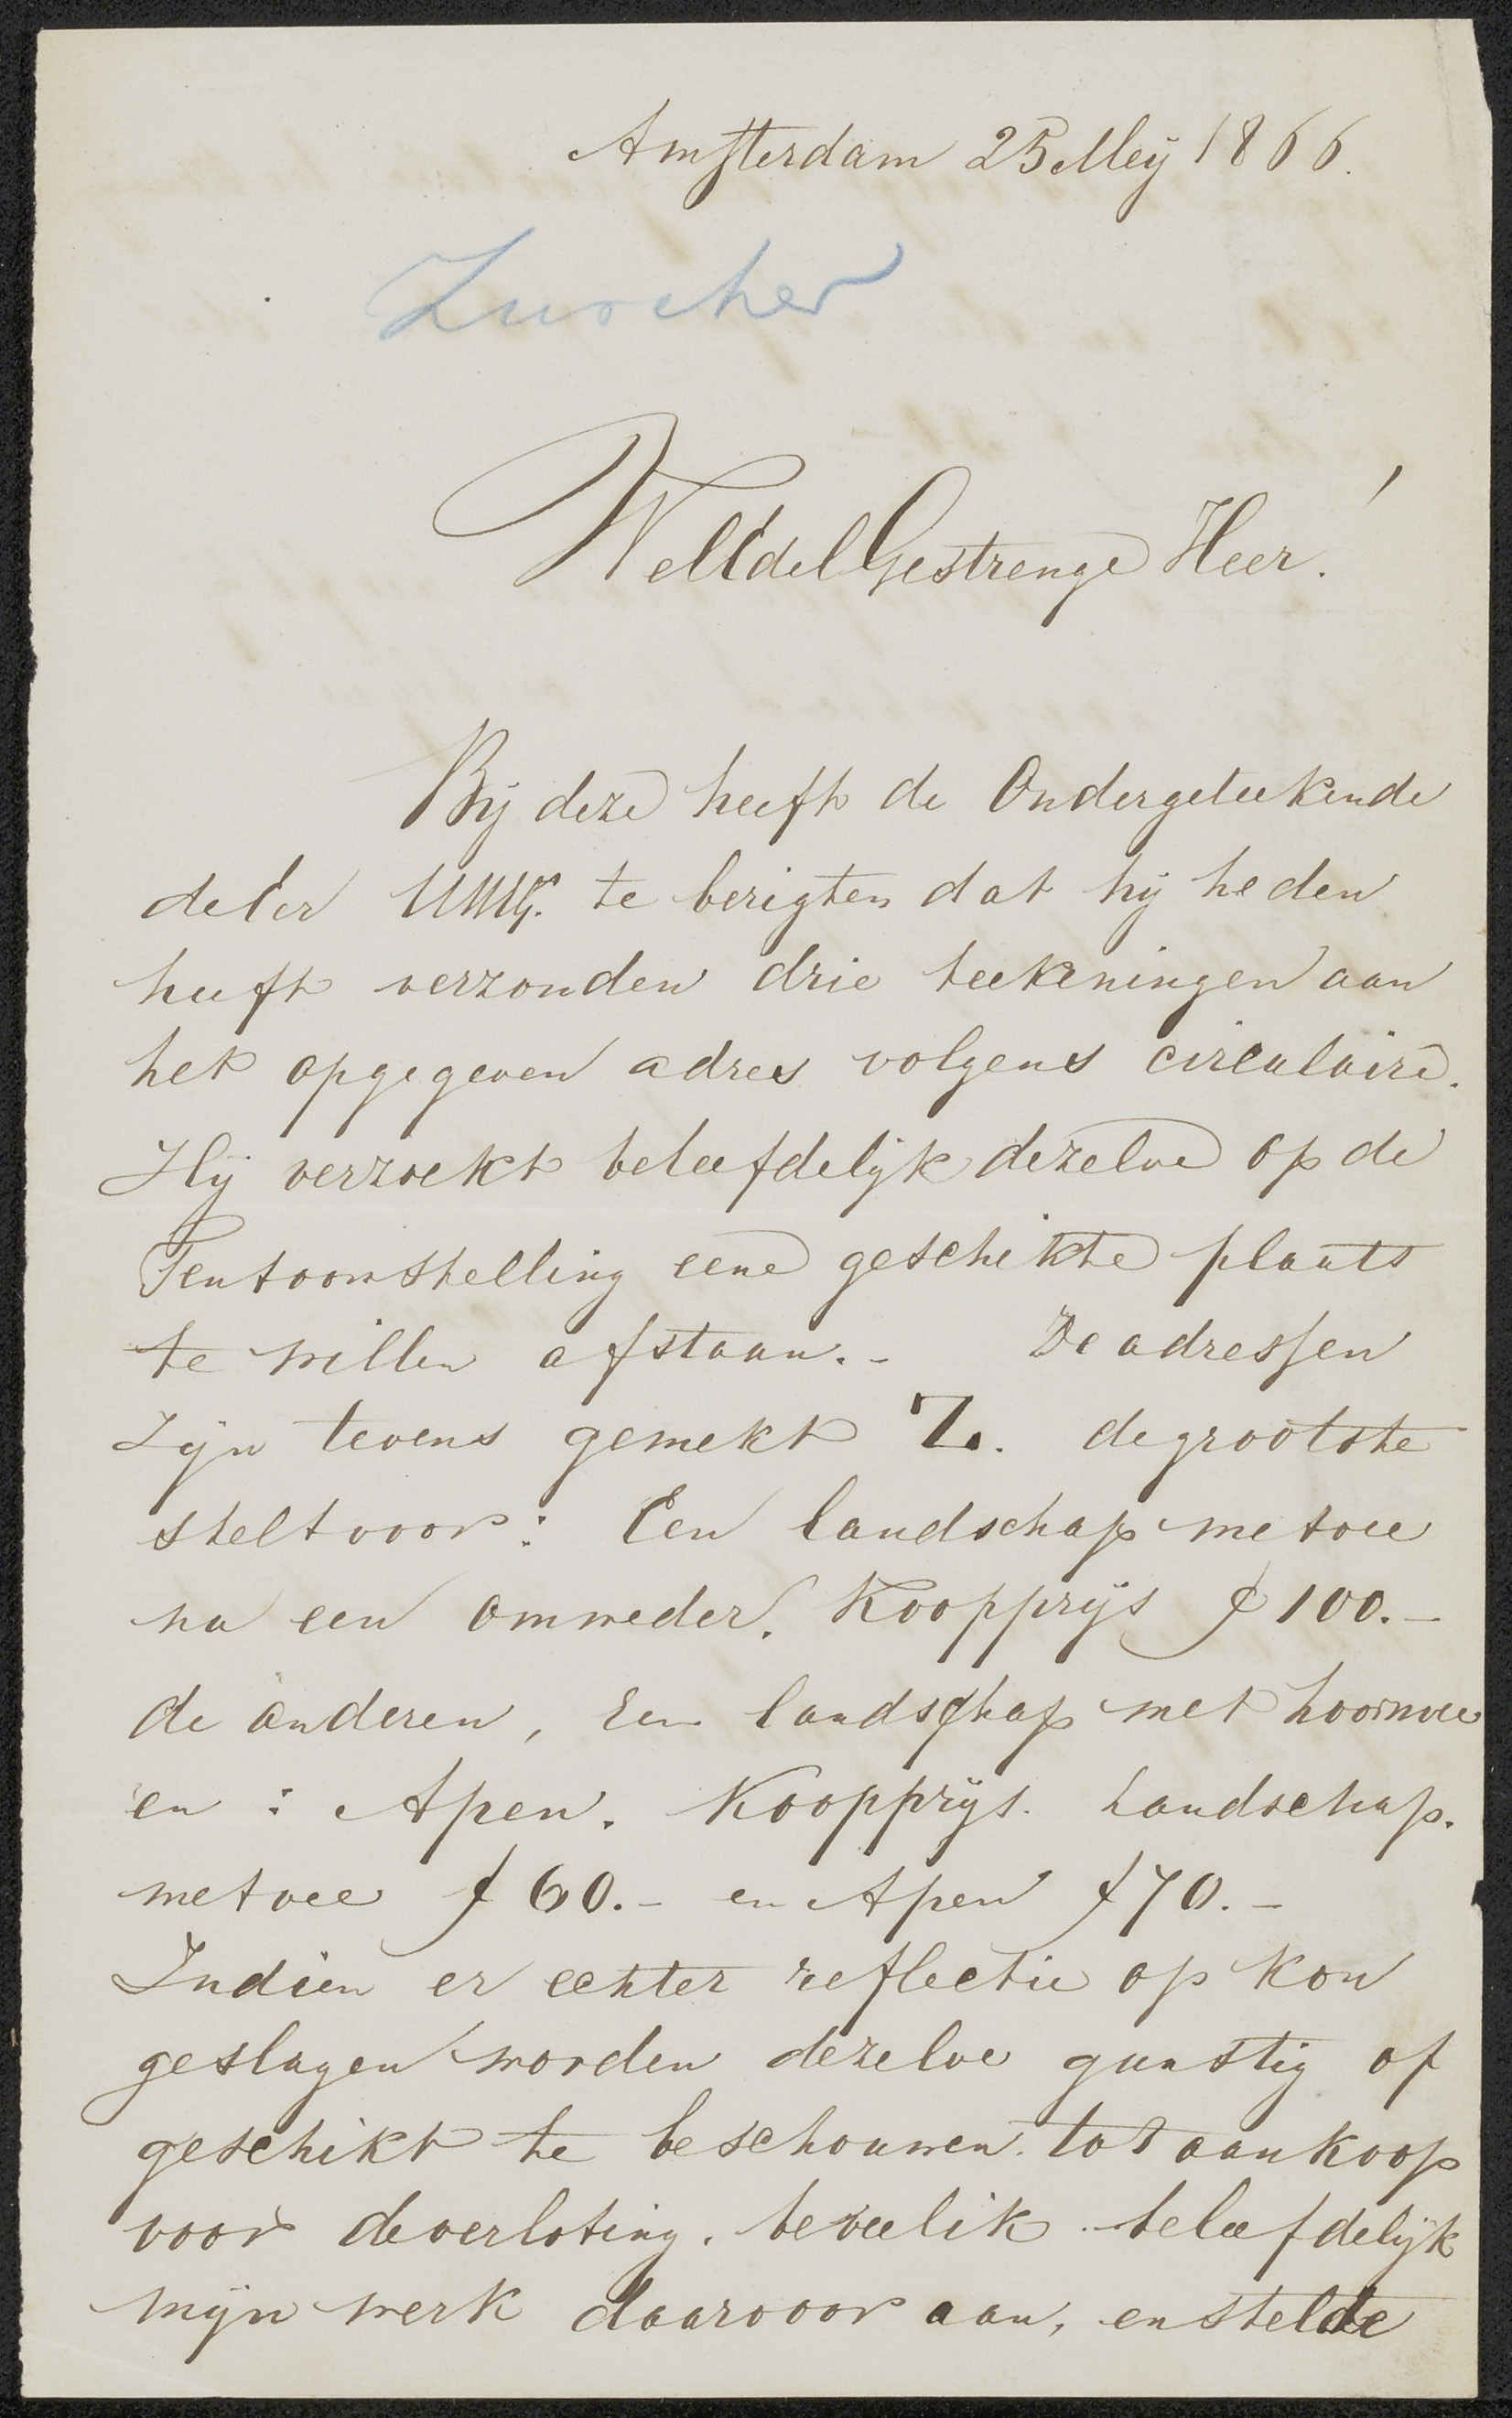 Amsterdam 25 Meij 1866.
Zurcher
WelEdelGestrenge Heer!
Bij deze heeft de Ondergeteekende
de Eer UWEG. te berigten dat hij heden
heeft verzonden drie teekeningen aan
het opgegeven adres volgens circulaire.
Hij verzoekt beleefdelijk dezelve op de
Tentoonstelling eene geschikte plaats
te willen afstaan. - De adressen
zijn tevens gemekt Z. de grootste
stelt voor: Een landschap met vee
na een omweder. Koopprijs ƒ 100. -
de anderen, een landschap met hoornvee
en : Apen. Koopprijs. Landschap.
met vee ƒ 60. - en Apen ƒ 70. -
Indien er echter reflectie op kon
geslagen worden dezelve gunstig of
geschikt te beschouwen tot aankoop
voor de verloting. beveel ik beleefdelijk
mijn werk daarvoor aan, en stelde